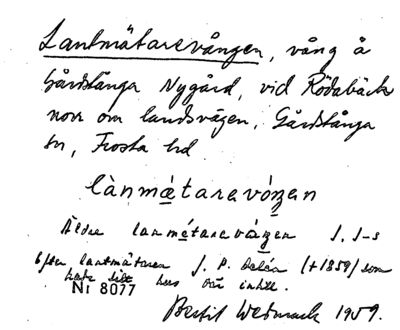 Lantmätarevången, vång å
Gårdstånga Nygård, vid Rödabäck
norr om landsvägen, Gårdstånga
sn, Frosta hd
lànmætarevóŋen
Äldre lanmætarevåŋen J. J-s
Efter lantmätaren J. P. Dalén (+1859) som
hade sitt hus där intill.
Ni 8077
Bertil Wedmark 1959.